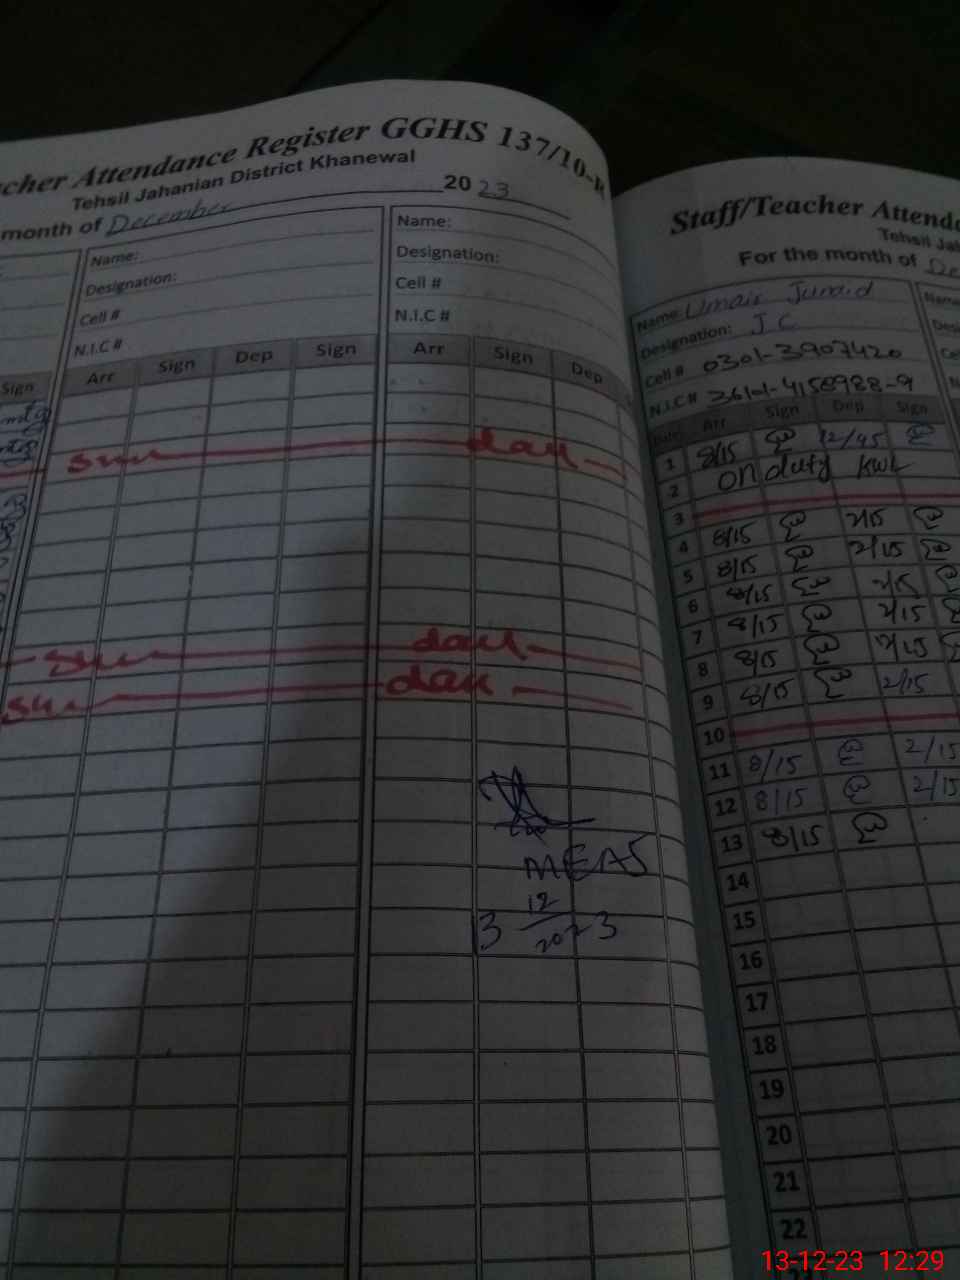 cher Attendance Register GGHS 137/10-R
Tehsil Jahanian District Khanewal
month of December 2023
Name:
Designation:
Cell #
N.I.C #
Name:
Designation:
Cell #
N.I.C #
Sign Arr Sign Dep Sign Arr Sign Dep
sun day
sun day
sun day
MEAS
13 12 2023
Staff/Teacher Attenda
Tehsil Jah
For the month of De
Name: Umair Junaid
Designation: J C
Cell # 0301-3907420
N.I.C # 36101-4158988-9
Name
Desi
Ce
N
Date Arr Sign Dep Sign
1 8/15 12/45
2 on duty KWL
3
4 8/15 2/15
5 8/15 2/15
6 8/15 2/15
7 8/15 2/15
8 8/15 2/15
9 8/15 2/15
10
11 8/15 2/15
12 8/15 2/15
13 8/15
14
15
16
17
18
19
20
21
22
13-12-23 12:29